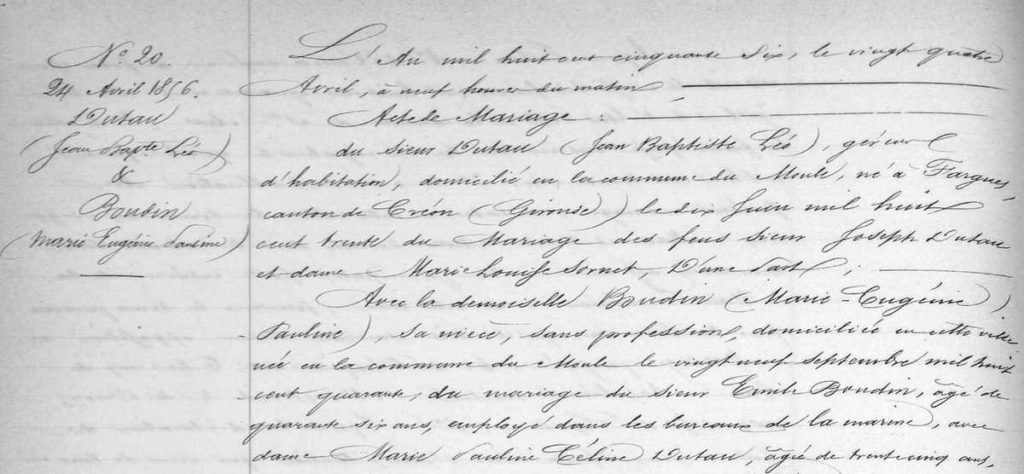 N° 20.
24 Avril 1856.
Dutau
(Jean Bapte Léo)
&
Boudin
(Marie Eugénie Pauline)
L'An mil huit cent cinquante six, le vingt quatre
Avril, à neuf heures du matin
Acte de Mariage
du sieur Dutau (Jean Baptiste Léo), géreur
d'habitation, domicilié en la commune du Moule, né à Fargues,
canton de Créon (Gironde) le dix Juin mil huit
cent trente du Mariage des feus sieur Joseph Dutau
et dame Marie Louise Sornet, D'une part;
Avec la demoiselle Boudin (Marie-Eugénie
Pauline), sa nièce, sans profession, domiciliée en cette ville
née en la commune du Moule le vingt neuf septembre mil huit
cent quarante, du mariage du sieur Emile Boudin, âgé de
quarante six ans, employé dans les bureaux de la marine, avec
dame Marie Pauline Céline Dutau, âgée de trente cinq ans,